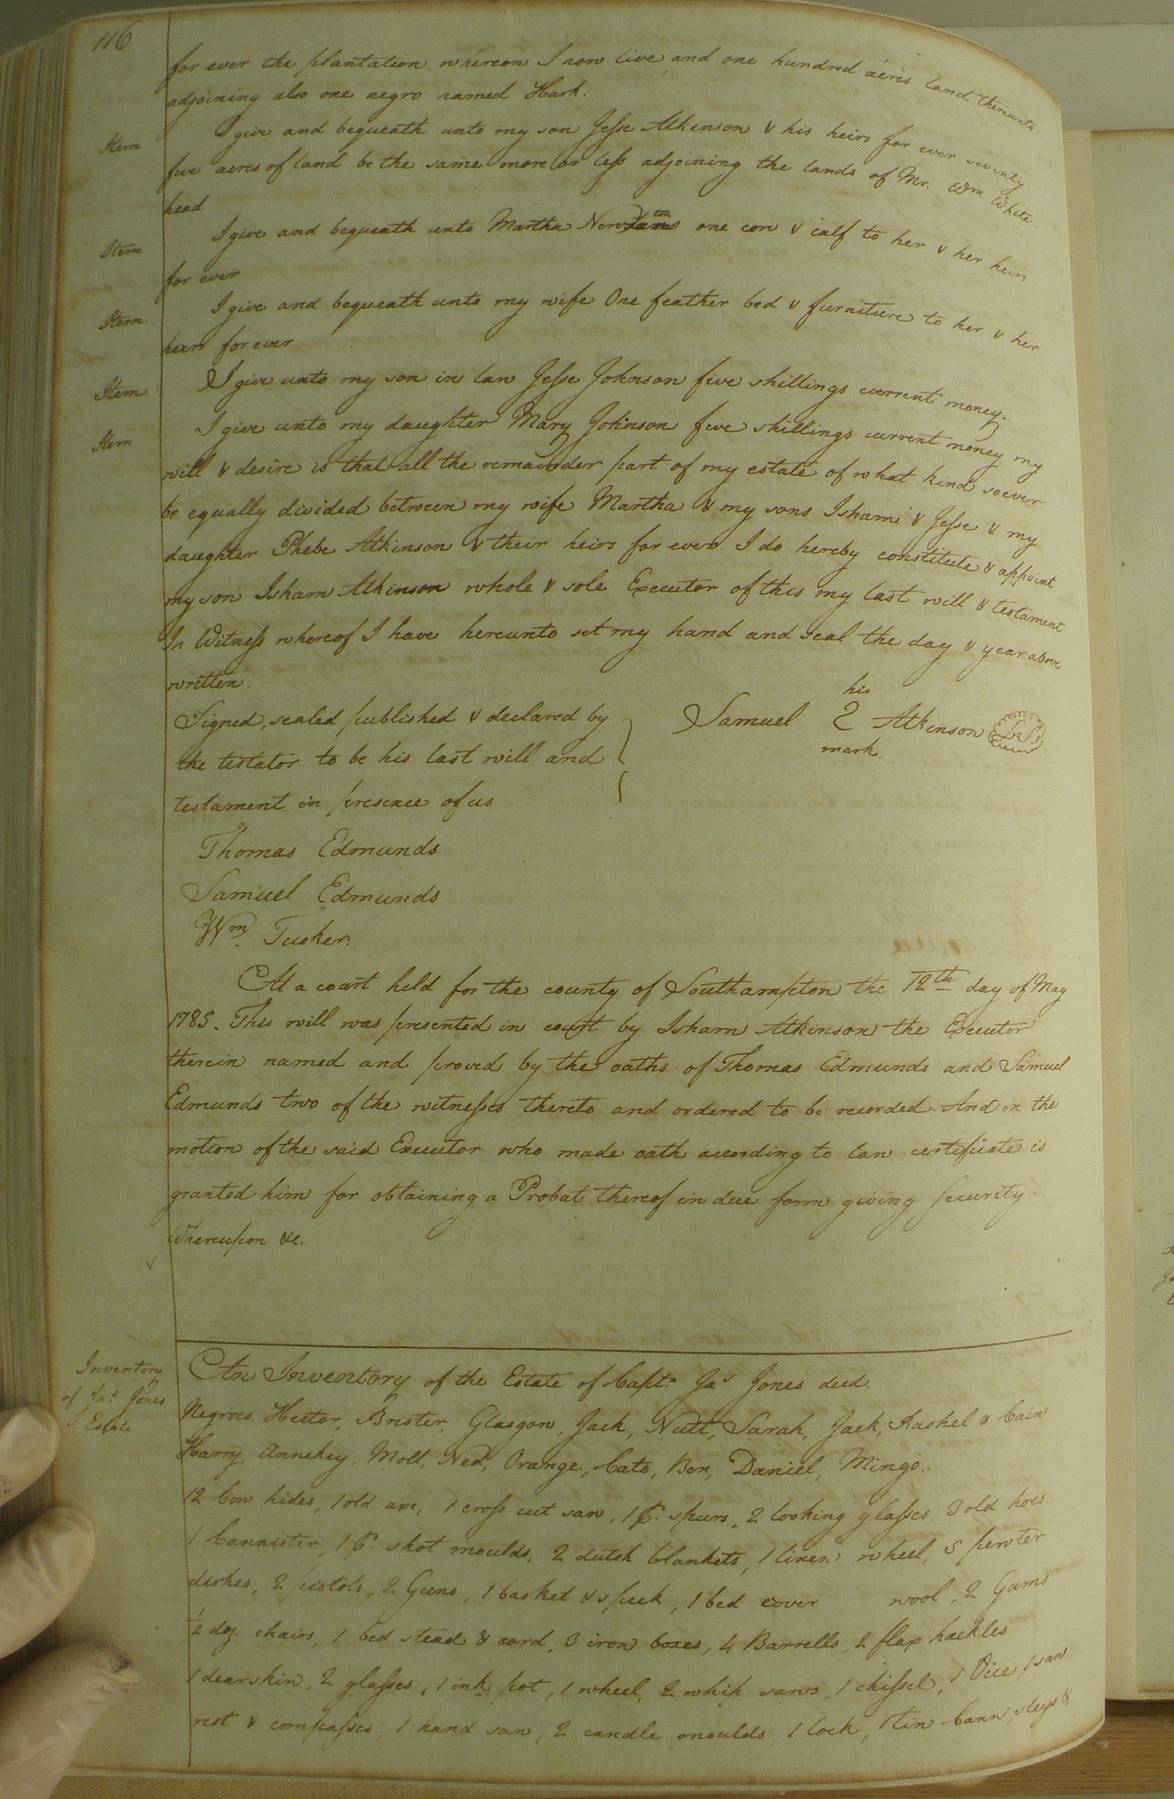 116
for ever the plantation whereon I now live and one hundred acres land thereunto
adjoining also one negro named Hark.
Item I give and bequeath unto my son Jesse Atkinson & his heirs for ever seventy
five acres of land be the same more or less adjoining the lands of Mr. Wm White
head
Item I give and bequeath unto Martha one cow & calf to her & her heirs
for ever
Item. I give and bequeath unto my wife One feather bed & furniture to her & her
heirs for ever
Item. I give unto my son in law Jesse Johnson five shillings current money.
Item I give unto my daughter Mary Johnson five shillings current money my
will & desire is that all the remainder part of my estate of what kind soever
be equally divided between my wife Martha & my sons Isham & Jesse & my
daughter Phebe Atkinson & their heirs for ever I do hereby constitute & appoint
my son Isham Atkinson whole & sole Executor of this my last will & testament
In Witness whereof I have hereunto set my hand and seal the day & year above
written.
Signed, sealed published & declared by
the testator to be his last will and
testament in presence of us
his
Samuel 2 Atkinson LS
mark.
Thomas Edmunds
Samuel Edmunds
Wm. Tucker.
At a court held for the county of Southampton the 12th day of May
1785. This will was presented in court by Isham Atkinson the Executor
therein named and proved by the oaths of Thomas Edmunds and Samuel
Edmunds two of the witnesses thereto and ordered to be recorded. And on the
motion of the said Executor who made oath according to law certificate is
granted him for obtaining a Probat thereof in due form giving security
Whereupon &c.
Inventory
of Jas. Jones
Estate
An Inventory of the Estate of Capt. Jas. Jones decd.
Negroes. Hector, Brister, Glasgow, Jack, Nutt, Sarah, Jack, Rachel & Cain
Harry, Annekey, Moll, Ned, Orange, Cato, Ben, Daniel, Mingo.
12 Cow hides, 1 old axe, 1 cross cut saw, 1 pr. spurs, 2 looking glasses 3 old hoes
1 bannister, 1 pr. shot moulds, 2 dutch blankets, 1 linen wheel, 5 pewter
dishes, 2 pistols, 2 Guns, 1 basket & , 1 bed cover wool, 2 Gums
½ doz. chairs, 1 bed stead & cord, 3 iron boxes, 4 Barrells, 2 flax hackles
1 dearskin, 2 glasses, 1 ink pot, 1 wheel, 2 whip saws, 1 chissel, 1 Vice, 1 saw
rest & compasses, 1 hand saw, 2 candle moulds, 1 lock, 1 tin slays &